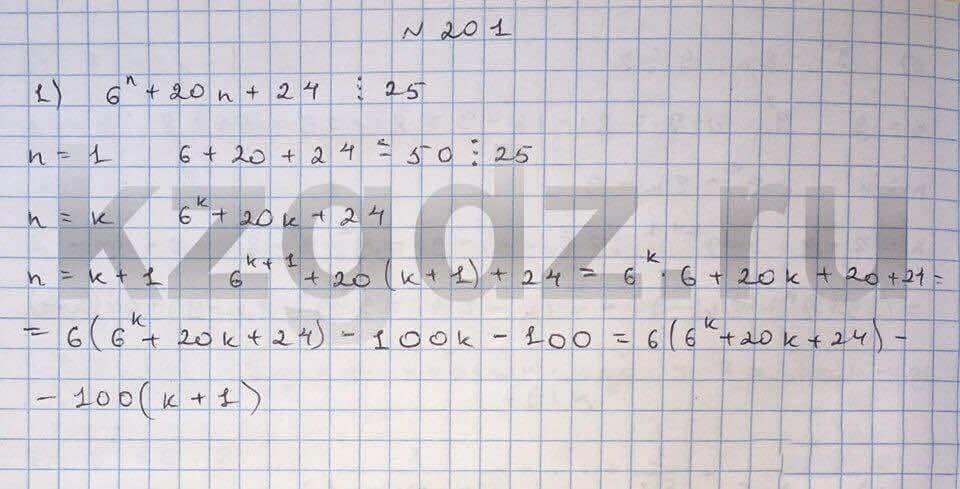 N 201
1) 6ⁿ + 20n + 24 ⋮ 25
n = 1 6 + 20 + 24 = 50 ⋮ 25
n = k 6ᵏ + 20k + 24
n = k + 1 6ᵏ⁺¹ + 20(k + 1) + 24 = 6ᵏ · 6 + 20k + 20 + 24 =
= 6(6ᵏ + 20k + 24) - 100k - 100 = 6(6ᵏ + 20k + 24) -
- 100(k + 1)
kzgdz.ru